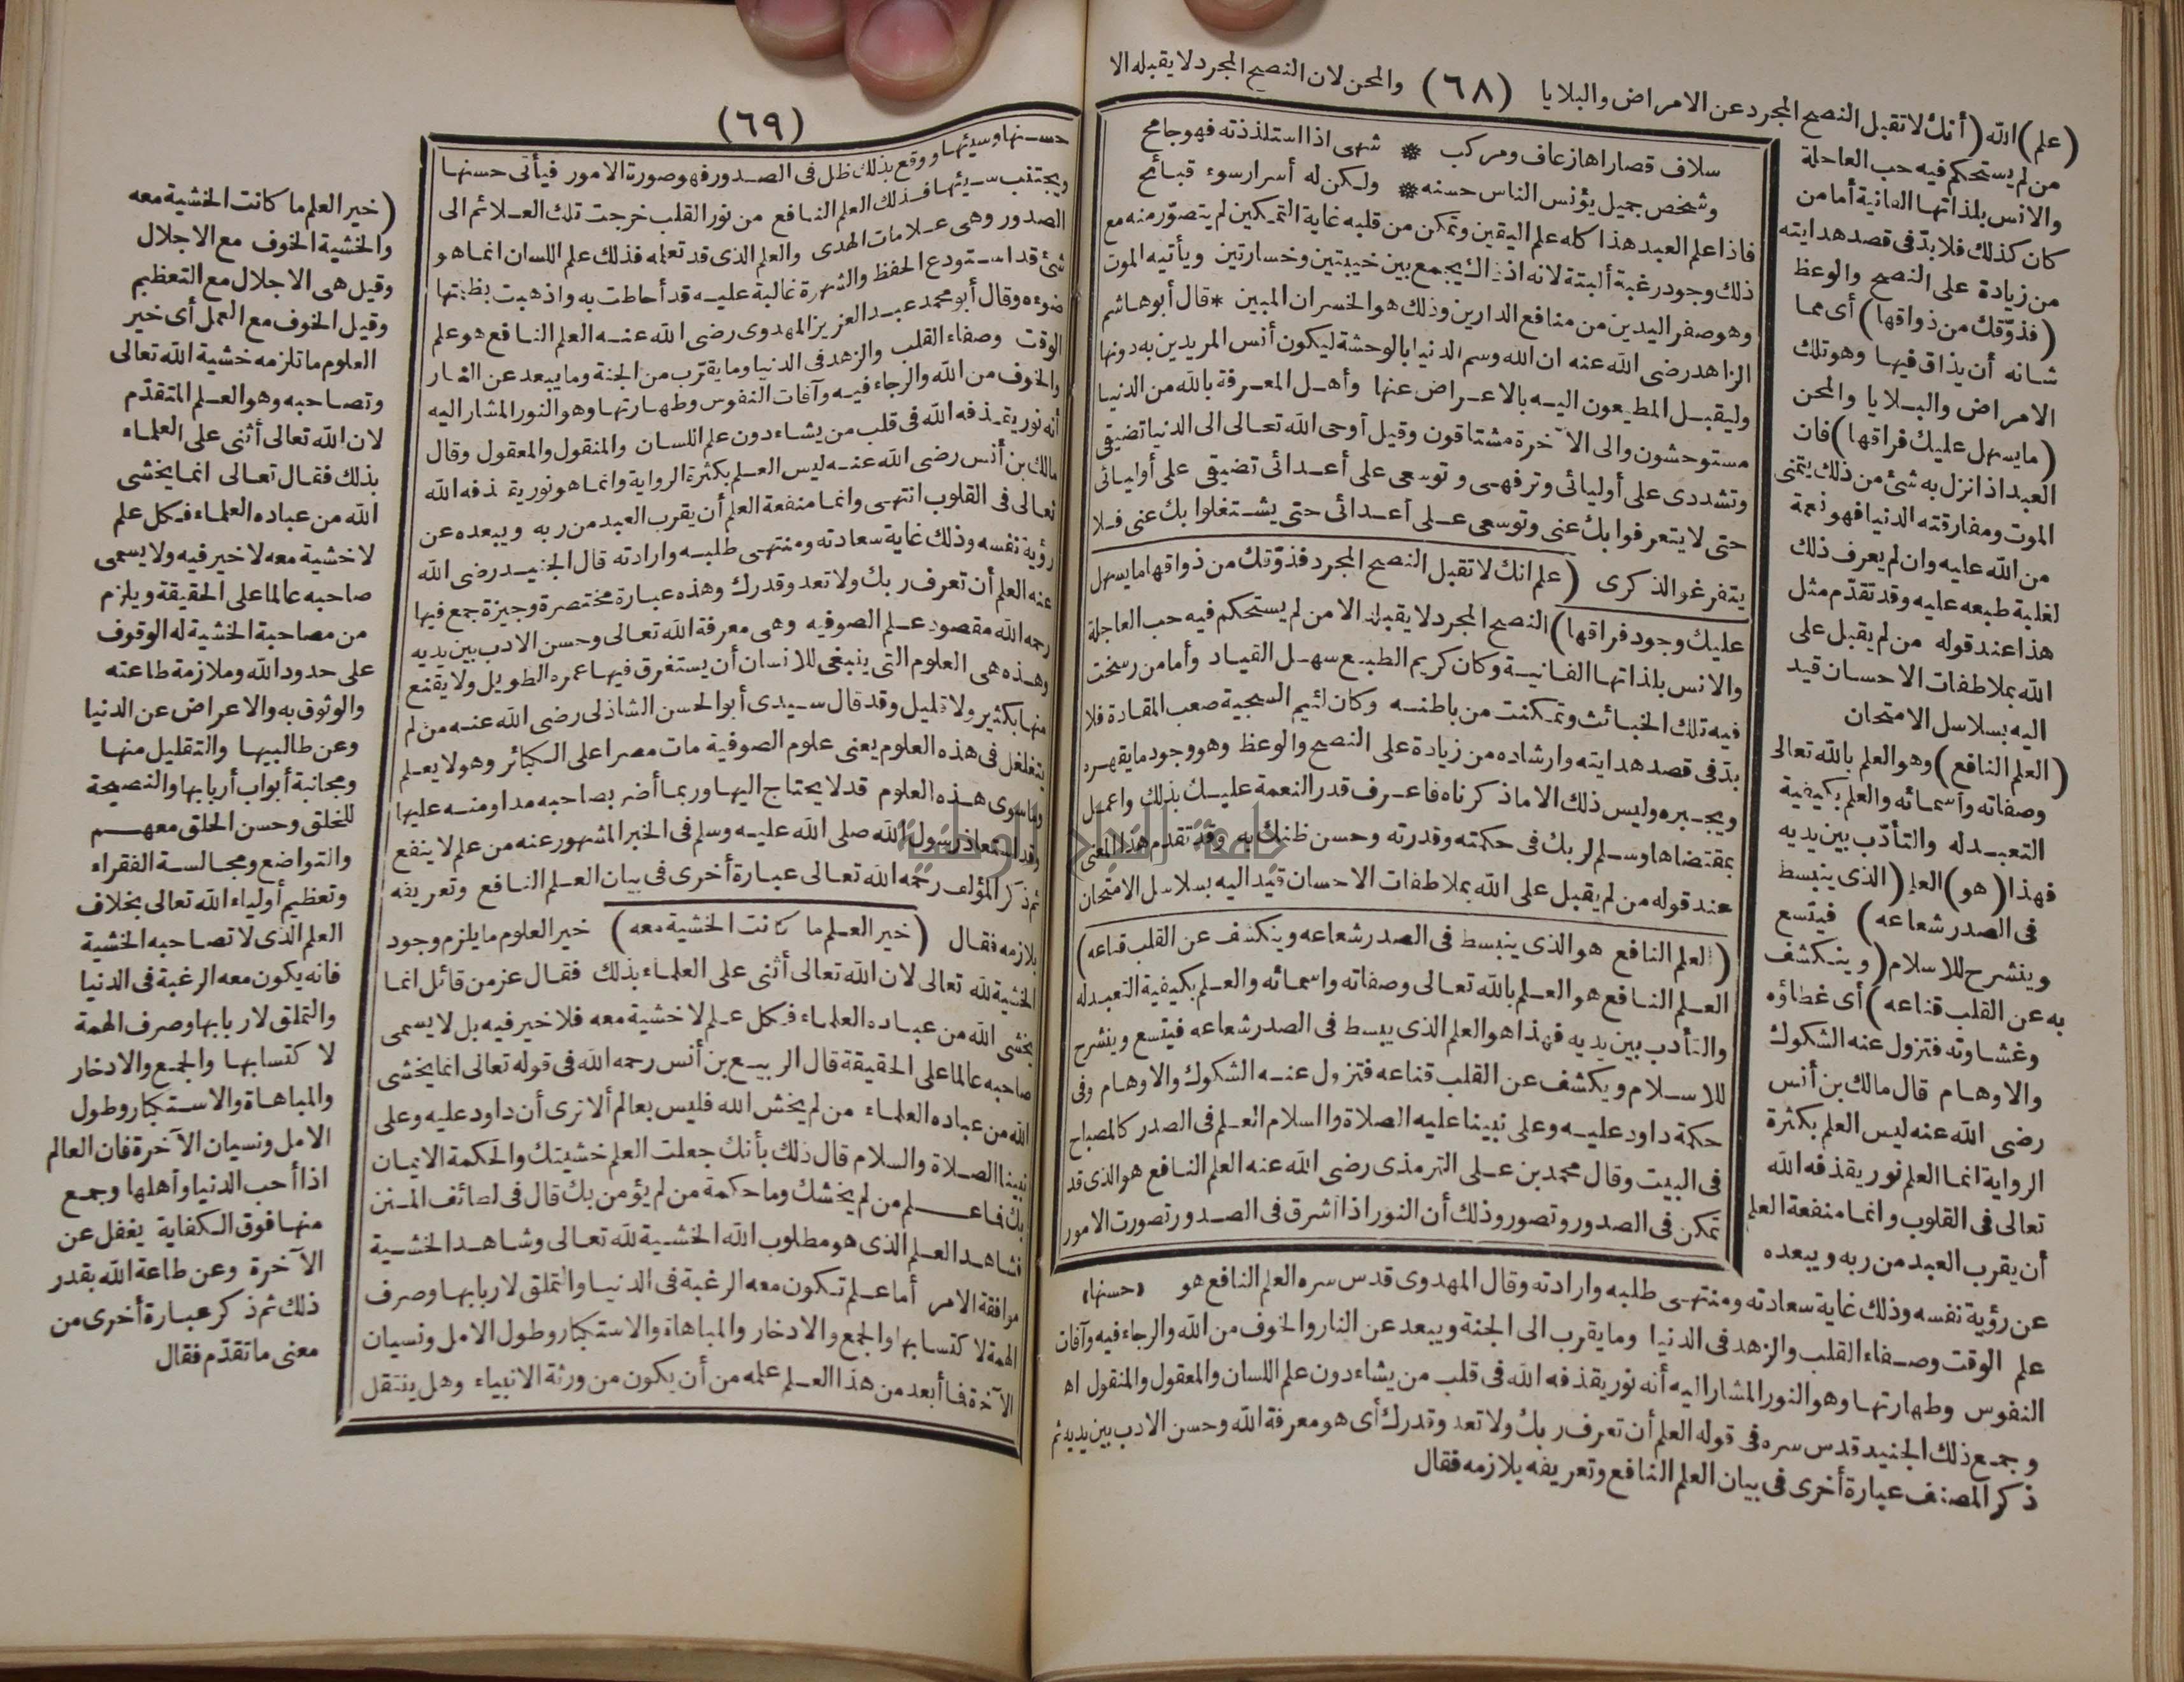 (علم) الله (أنك لا تقبل النصح المجرد عن الامراض والبلايا (٦٨) والمحن لان النصح المجرد لا يقبله الا
من لم يستحكم فيه حب العاجلة
والانس بلذاتها الفانية أما من
كان كذلك فلا بدّ فى قصد هدايته
من زيادة على النصح والوعظ
(فذوّقك من ذواقها) أى مما
شانه أن يذاق فيها وهو تلك
الامراض والبلايا والمحن
(ما يسهل عليك فراقها) فان
العبد اذ انزل به شئ من ذلك يتمنى
الموت ومفارقته الدنيا فهو نعمة
من الله عليه وان لم يعرف ذلك
لغلبة طبعه عليه وقد تقدّم مثل
هذا عند قوله من لم يقبل على
الله بملاطفات الاحسان قيد
اليه بسلاسل الامتحان
(العلم النافع) وهو العلم بالله تعالى
وصفاته وأسمائه والعلم بكيفية
التعبد له والتأدّب بين يديه
فهذا (هو) العلم (الذى ينبسط
فى الصدر شعاعه) فيتسع
وينشرح للاسلام (وينكشف
به عن القلب قناعه) أى غطاؤه
وغشاوته فتزول عنه الشكوك
والاوهام قال مالك بن أنس
رضى الله عنه ليس العلم بكثرة
الرواية انما العلم نور يقذفه الله
تعالى فى القلوب وانما منفعة العلم
أن يقرب العبد من ربه ويبعده
عن رؤية نفسه وذلك غاية سعادته ومنتهى طلبه وارادته وقال المهدوى قدس سره العلم النافع هو
علم الوقت وصفاء القلب والزهد فى الدنيا وما يقرب الى الجنة ويبعد عن النار والخوف من الله والرجاء فيه وآفات
النفوس وطهارتها وهو النور المشار اليه أنه نور يقذفه الله فى قلب من يشاء دون علم اللسان والمعقول والمنقول اه
وجمع ذلك الجنيد قدس سره فى قوله العلم أن تعرف ربك ولا تعد وقدرك أى هو معرفة الله وحسن الادب بين يديه ثم
ذكر المصنف عبارة أخرى فى بيان العلم النافع وتعريفه بلازمه فقال
سلاف قصاراها زعاف ومركب * شهى اذا استلذذته فهو جامح
وشخص جميل يؤنس الناس حسنه * ولكن له أسرار سوء قبائح
فاذا علم العبد هذا كله علم اليقين وتمكن من قلبه غاية التمكين لم يتصوّر منه مع
ذلك وجود رغبة ألبتة لانه اذ ذاك يجمع بين خيبتين وخسارتين ويأتيه الموت
وهو صفر اليدين من منافع الدارين وذلك هو الخسران المبين * قال أبو هاشم
الزاهد رضى الله عنه ان الله وسم الدنيا بالوحشة ليكون أنس المريدين به دونها
وليقبل المطيعون اليه بالاعراض عنها وأهل المعرفة بالله من الدنيا
مستوحشون والى الآخرة مشتاقون وقيل أوحى الله تعالى الى الدنيا تضيقى
وتشددى على أوليائى وترفهى وتوسعى على أعدائى تضيقى على أوليائى
حتى لا يتعرفوا بك عنى وتوسعى على أعدائى حتى يشتغلوا بك عنى فلا
يتفرغو الذكرى (علم انك لا تقبل النصح المجرد فذوّقك من ذواقها ما يسهل
عليك وجود فراقها) النصح المجرد لا يقبله الا من لم يستحكم فيه حب العاجلة
والانس بلذاتها الفانية وكان كريم الطبع سهل القياد وأما من رسخت
فيه تلك الخبائث وتمكنت من باطنه وكان لئيم السجية صعب المقادة فلا
بدّ فى قصد هدايته وارشاده من زيادة على النصح والوعظ وهو وجود ما يقهره
ويجبره وليس ذلك الا ما ذكرناه فاعرف قدر النعمة عليك بذلك واعمل
بمقتضاها وسلم لربك فى حكمته وقدرته وحسن ظنك به وقد تقدم هذا المعنى
عند قوله من لم يقبل على الله بملاطفات الاحسان قيد اليه بسلاسل الامتحان
(العلم النافع هو الذى ينبسط فى الصدر شعاعه وينكشف عن القلب قناعه)
العلم النافع هو العلم بالله تعالى وصفاته واسمائه والعلم بكيفية التعبد له
والتأدب بين يديه فهذا هو العلم الذى يبسط فى الصدر شعاعه فيتسع وينشرح
للاسلام ويكشف عن القلب قناعه فتزول عنه الشكوك والاوهام وفى
حكمة داود عليه وعلى نبينا عليه الصلاة والسلام العلم فى الصدر كالمصباح
فى البيت وقال محمد بن على الترمذى رضى الله عنه العلم النافع هو الذى قد
تمكن فى الصدور وتصور وذلك أن النور اذا أشرق فى الصدور تصورت الامور
(حسنها)
(٦٩)
حسنها وسيئها ووقع بذلك ظل فى الصدور فهو صورة الامور فيأتى حسنها
ويجتنب سيئها فذلك العلم النافع من نور القلب خرجت تلك العلائم الى
الصدور وهى علامات الهدى والعلم الذى قد تعلمه فذلك علم اللسان انما هو
شئ قد استودع الحفظ والشهرة غالبة عليه قد أحاطت به واذهبت بظلمتها
ضوءه وقال أبو محمد عبد العزيز المهدوى رضى الله عنه العلم النافع هو علم
الوقت وصفاء القلب والزهد فى الدنيا وما يقرّب من الجنة وما يبعد عن النار
والخوف من الله والرجاء فيه وآفات النفوس وطهارتها وهو النور المشار اليه
أنه نور يقذفه الله فى قلب من يشاء دون علم اللسان والمنقول والمعقول وقال
مالك بن أنس رضى الله عنه ليس العلم بكثرة الرواية وانما هو نور يقذفه الله
تعالى فى القلوب انتهى وانما منفعة العلم أن يقرب العبد من ربه ويبعده عن
رؤية نفسه وذلك غاية سعادته ومنتهى طلبه وارادته قال الجنيد رضى الله
عنه العلم أن تعرف ربك ولا تعد وقدرك وهذه عبارة مختصرة وجيزة جمع فيها
رحمه الله مقصود علم الصوفيه وهى معرفة الله تعالى وحسن الادب بين يديه
وهذه هى العلوم التى ينبغى للانسان أن يستغرق فيها عمره الطويل ولا يقنع
منها بكثير ولا قليل وقد قال سيدى أبو الحسن الشاذلى رضى الله عنه من لم
يتغلغل فى هذه العلوم يعنى علوم الصوفية مات مصرا على الكبائر وهو لا يعلم
وما سوى هذه العلوم قد لا يحتاج اليها وربما أضر بصاحبه مداومته عليها
وقد استعاذ رسول الله صلى الله عليه وسلم فى الخبر المشهور عنه من علم لا ينفع
ثم ذكر المؤلف رحمه الله تعالى عبارة أخرى فى بيان العلم النافع وتعريفه
بلازمه فقال (خير العلم ما كانت الخشية معه) خير العلوم ما يلزم وجود
الخشية لله تعالى لان الله تعالى أثنى على العلماء بذلك فقال عز من قائل انما
يخشى الله من عباده العلماء فكل علم لا خشية معه فلا خير فيه بل لا يسمى
صاحبه عالما على الحقيقة قال الربيع بن أنس رحمه الله فى قوله تعالى انما يخشى
الله من عباده العلماء من لم يخش الله فليس بعالم ألا ترى أن داود عليه وعلى
نبينا الصلاة والسلام قال ذلك بأنك جعلت العلم خشيتك والحكمة الايمان
بك فما علم من لم يخشك وما حكمة من لم يؤمن بك قال فى لطائف المنن
فشاهد العلم الذى هو مطلوب الله الخشية لله تعالى وشاهد الخشية
موافقة الامر أما علم تكون معه الرغبة فى الدنيا والتملق لاربابها وصرف
الهمة لا كتسابها والجمع والادخار والمباهاة والاستكبار وطول الامل ونسيان
الآخرة فما أبعد من هذا العلم علمه من أن يكون من ورثة الانبياء وهل ينتقل
(خير العلم ما كانت الخشية معه
والخشية الخوف مع الاجلال
وقيل هى الاجلال مع التعظيم
وقيل الخوف مع العمل أى خير
العلوم ما تلزمه خشية الله تعالى
وتصاحبه وهو العلم المتقدّم
لان الله تعالى أثنى على العلماء
بذلك فقال تعالى انما يخشى
الله من عباده العلماء فكل علم
لا خشية معه لا خير فيه ولا يسمى
صاحبه عالما على الحقيقة ويلزم
من مصاحبة الخشية له الوقوف
على حدود الله وملازمة طاعته
والوثوق به والاعراض عن الدنيا
وعن طالبيها والتقليل منها
ومجانبة أبواب أربابها والنصيحة
للخلق وحسن الخلق معهم
والتواضع ومجالسة الفقراء
وتعظيم أولياء الله تعالى بخلاف
العلم الذى لا تصاحبه الخشية
فانه يكون معه الرغبة فى الدنيا
والتملق لاربابها وصرف الهمة
لا كتسابها والجمع والادخار
والمباهاة والاستكبار وطول
الامل ونسيان الآخرة فان العالم
اذا أحب الدنيا وأهلها وجمع
منها فوق الكفاية يغفل عن
الآخرة وعن طاعة الله بقدر
ذلك ثم ذكر عبارة أخرى من
معنى ما تقدّم فقال
جامعة النجاح الوطنية